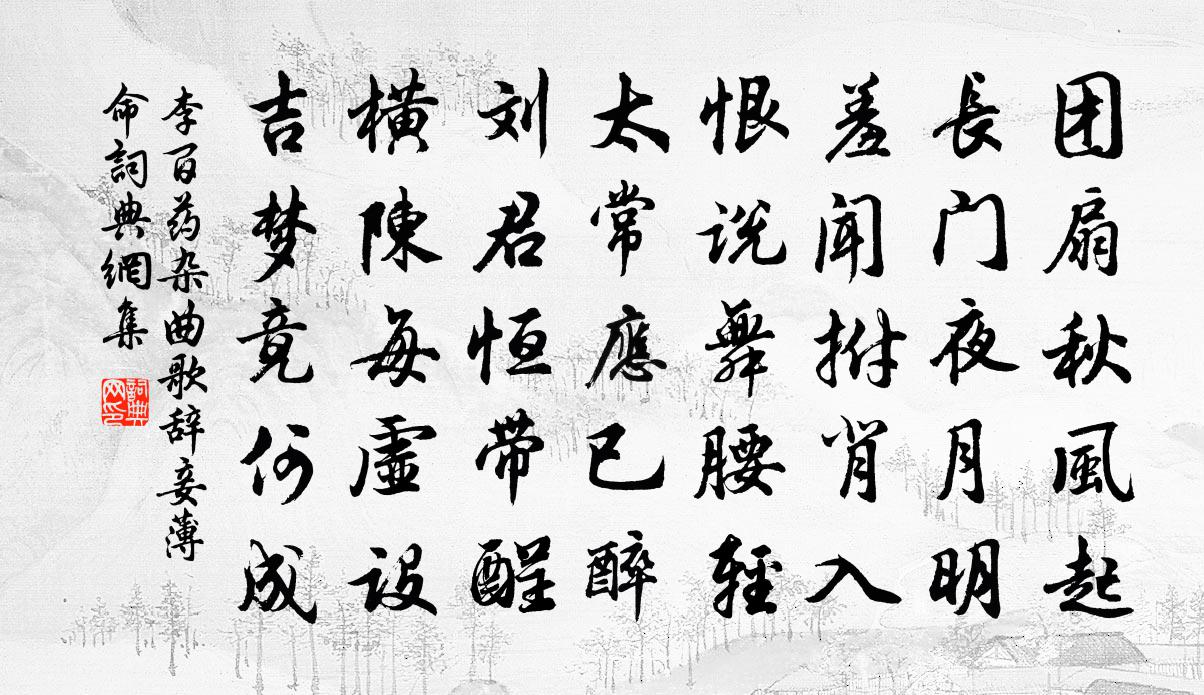 团扇秋風起
長门夜月明
羞闻拊背入
恨说舞腰輕
太常應已醉
刘君恒带酲
横陳每虛设
吉梦竟何成
李百药杂曲歌辞妾薄
命詞典網集
詞典
网印